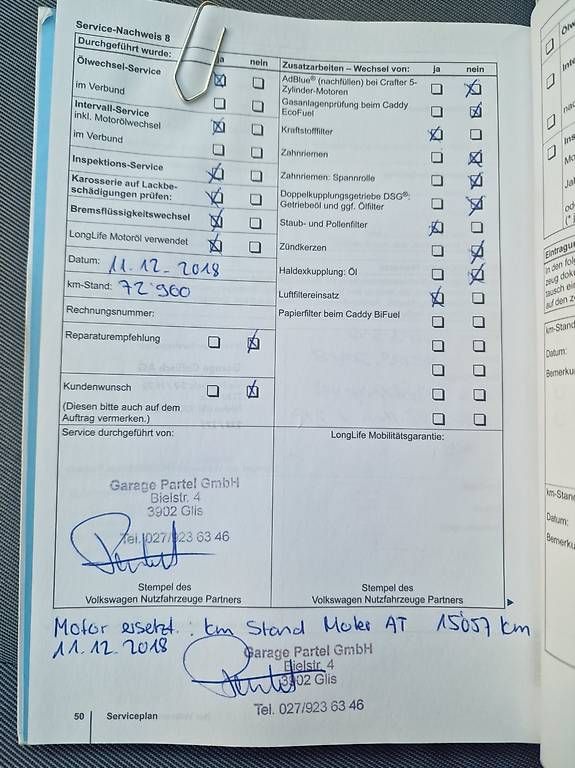 Service-Nachweis 8
Durchgeführt wurde:
ja
nein
Ölwechsel-Service
im Verbund
Intervall-Service
inkl. Motorölwechsel
im Verbund
Inspektions-Service
Karosserie auf Lackbe-
schädigungen prüfen:
Bremsflüssigkeitswechsel
LongLife Motoröl verwendet
Datum: 11.12.2018
km-Stand: 72'960
Rechnungsnummer:
Reparaturempfehlung
Kundenwunsch
(Diesen bitte auch auf dem
Auftrag vermerken.)
Zusatzarbeiten – Wechsel von:
ja
nein
AdBlue® (nachfüllen) bei Crafter 5-
Zylinder-Motoren
Gasanlagenprüfung beim Caddy
EcoFuel
Kraftstofffilter
Zahnriemen
Zahnriemen: Spannrolle
Doppelkupplungsgetriebe DSG®:
Getriebeöl und ggf. Ölfilter
Staub- und Pollenfilter
Zündkerzen
Haldexkupplung: Öl
Luftfiltereinsatz
Papierfilter beim Caddy BiFuel
Service durchgeführt von:
Garage Partel GmbH
Bielstr. 4
3902 Glis
Tel. 027/923 63 46
Stempel des
Volkswagen Nutzfahrzeuge Partners
LongLife Mobilitätsgarantie:
Stempel des
Volkswagen Nutzfahrzeuge Partners
Motor ersetzt. km Stand Motor AT 15'057 km
11.12.2018
Garage Partel GmbH
Bielstr. 4
3902 Glis
Tel. 027/923 63 46
50
Serviceplan
Eintragung
in den fol
zeug doku
tausch ein
auf den z
km-Stand
Datum:
Bemerku
km-Stan
Datum:
Bemerku